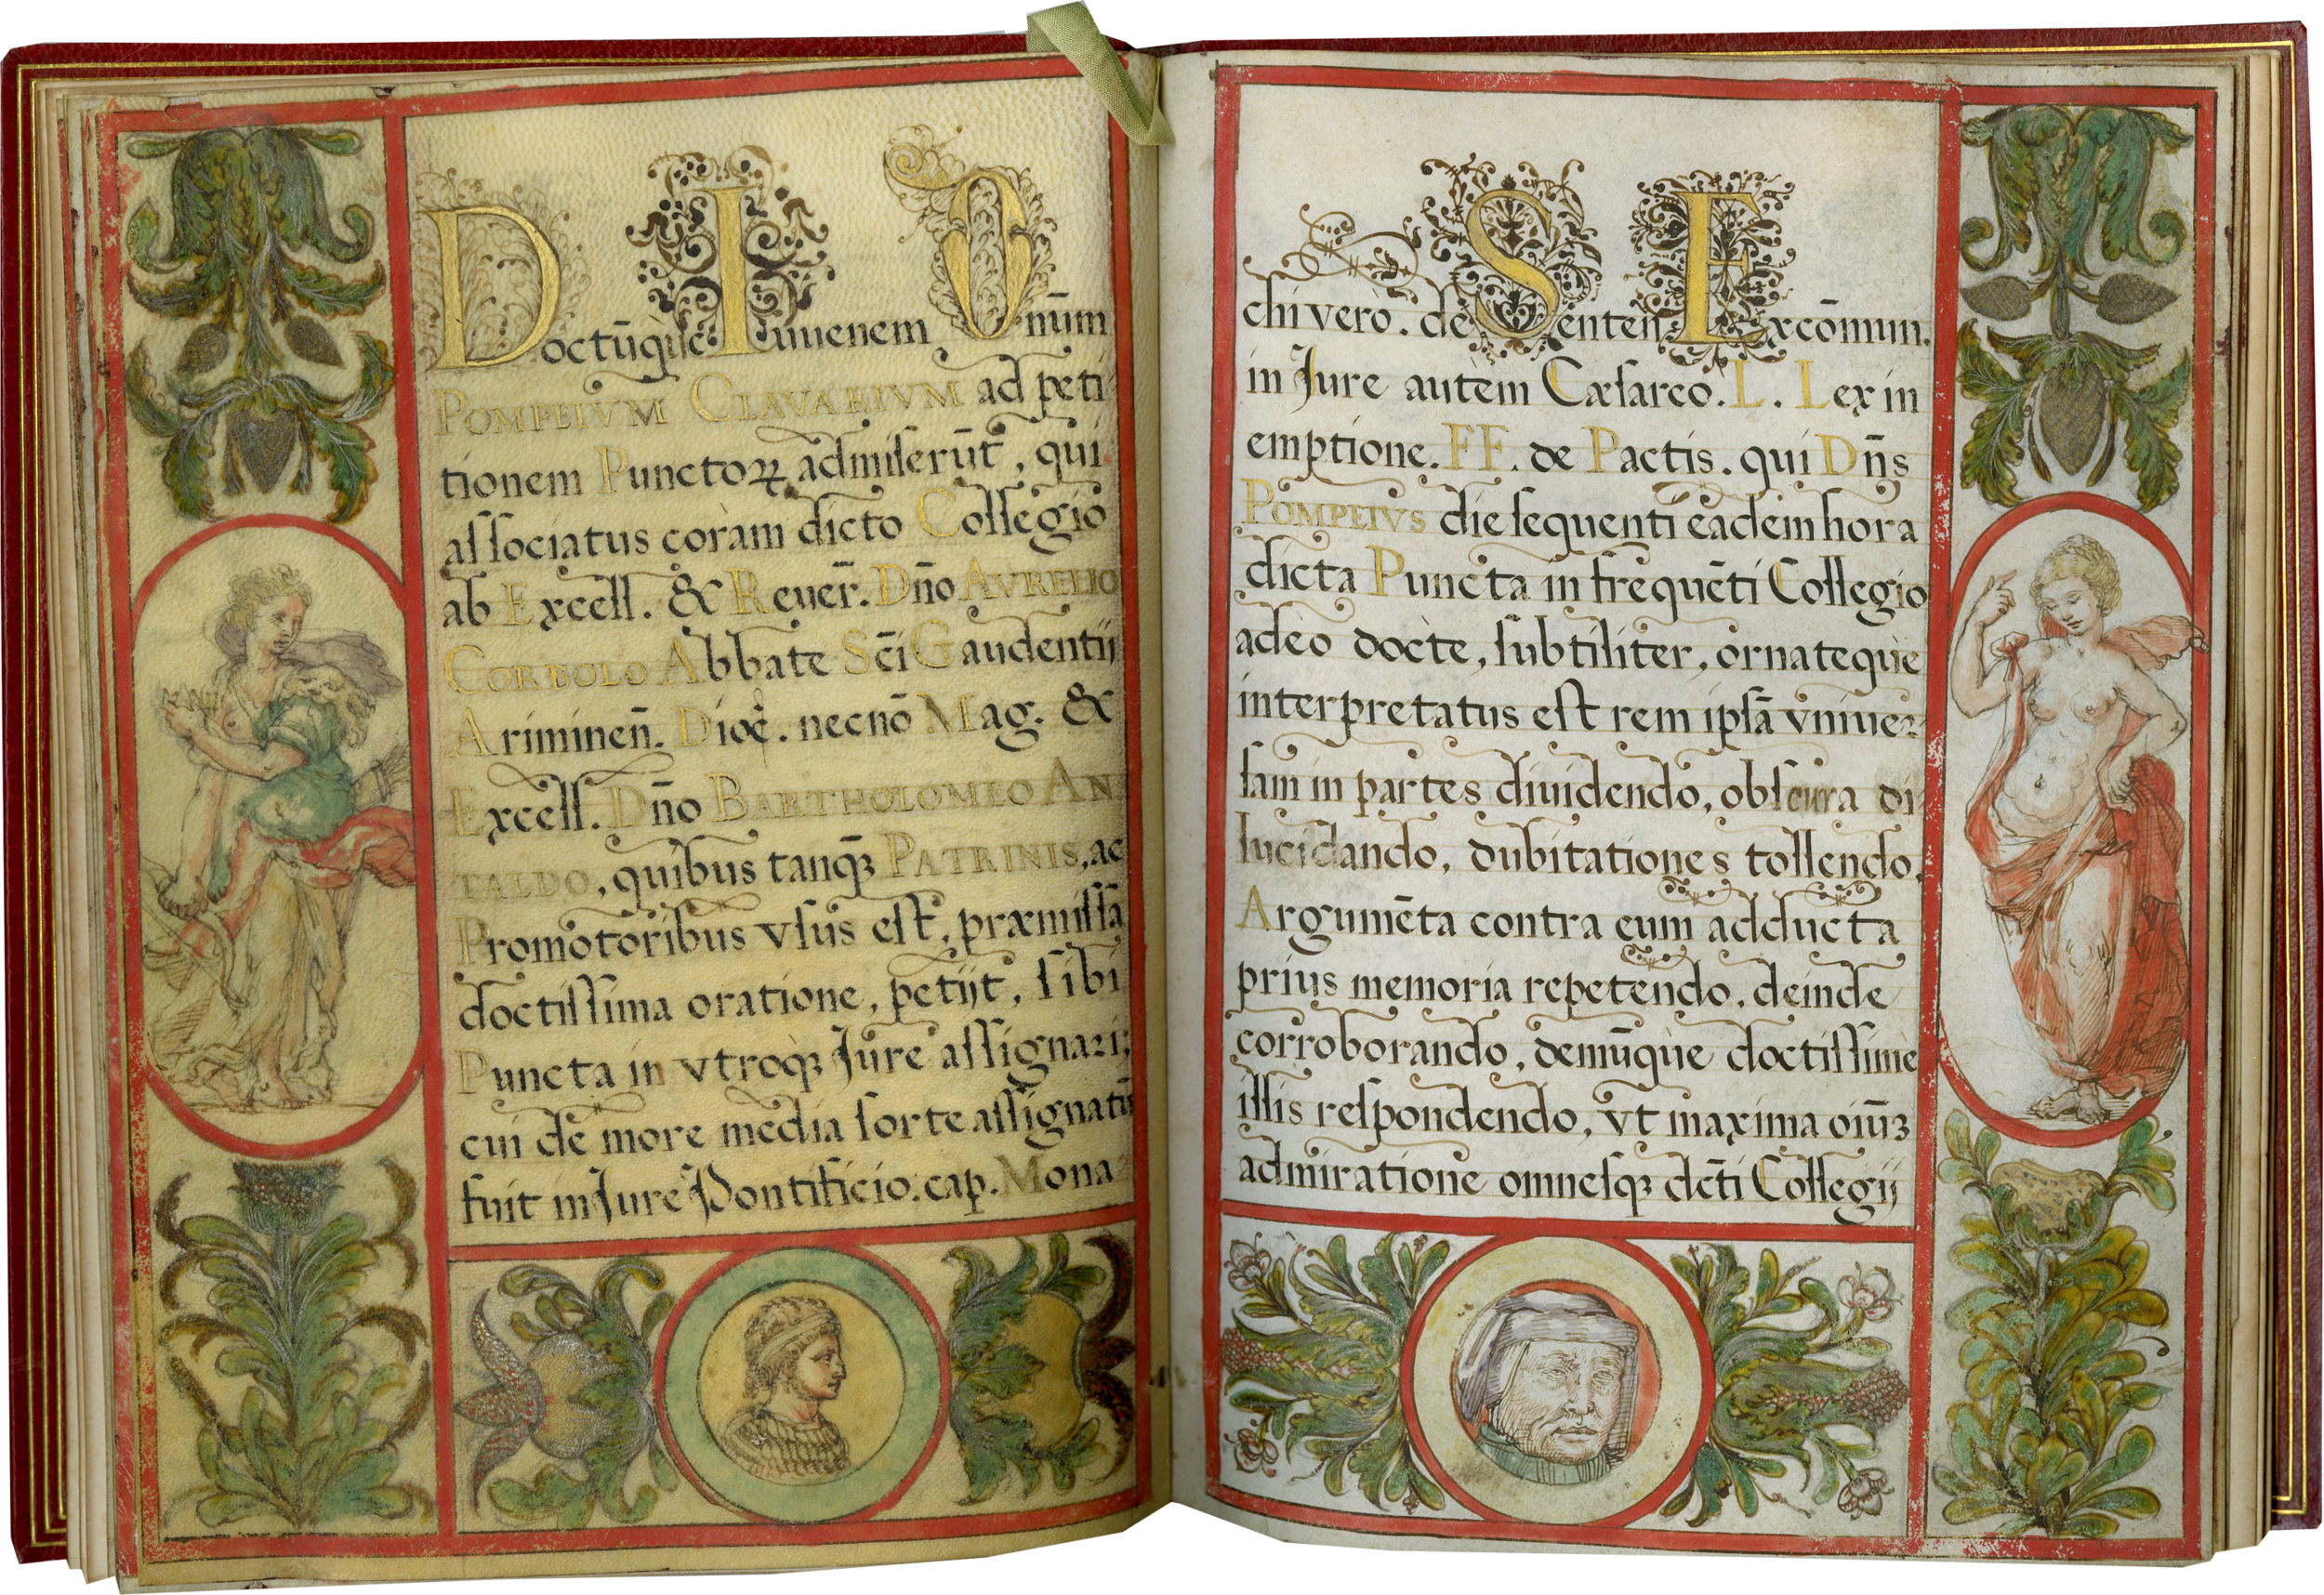 Doctūq̀ue Iuuenem Dnūm
POMPEIVM CLAVARIVM ad peti
tionem Punctoꝝ admiserūt, qui
associatus coràm dicto Collegio
ab Excell. & Reuer̄. Dn̄o AVRELIO
CORBOLO Abbate Sc̄i Gaudentij
Ariminen̄. Dioc̄. necnō Mag. &
Excell. Dn̄o BARTHOLOMEO AN
TALDO, quibus tanq̄ꝫ PATRINIS, ac
Promotoribus vsus est, præmissa
doctissima oratione, petijt, sibi
Puncta in vtroqꝫ Jure assignari;
cui de more media sorte assignatū
fuit in Jure Pontificio. cap. Mona
chi verò. de Senten: Excōmun.
in Jure autem Cæsareo. L. Lex in
emptione. FF. de Pactis. qui Dn̄s
POMPEIVS die sequenti eadem hora
dicta Puncta in frequēti Collegio
adeò doctè, subtiliter, ornateq̀ue
interpretatus est rem ipsā vniuer
sam in partes diuidendo, obscura di
lucidando, dubitationes tollendo,
Argumēta contra eum adducta
prius memoria repetendo, deinde
corroborando, demūq̀ue doctissimè
illis respondendo, vt maxima oiūꝫ
admiratione omnesqꝫ dc̄ti Collegij